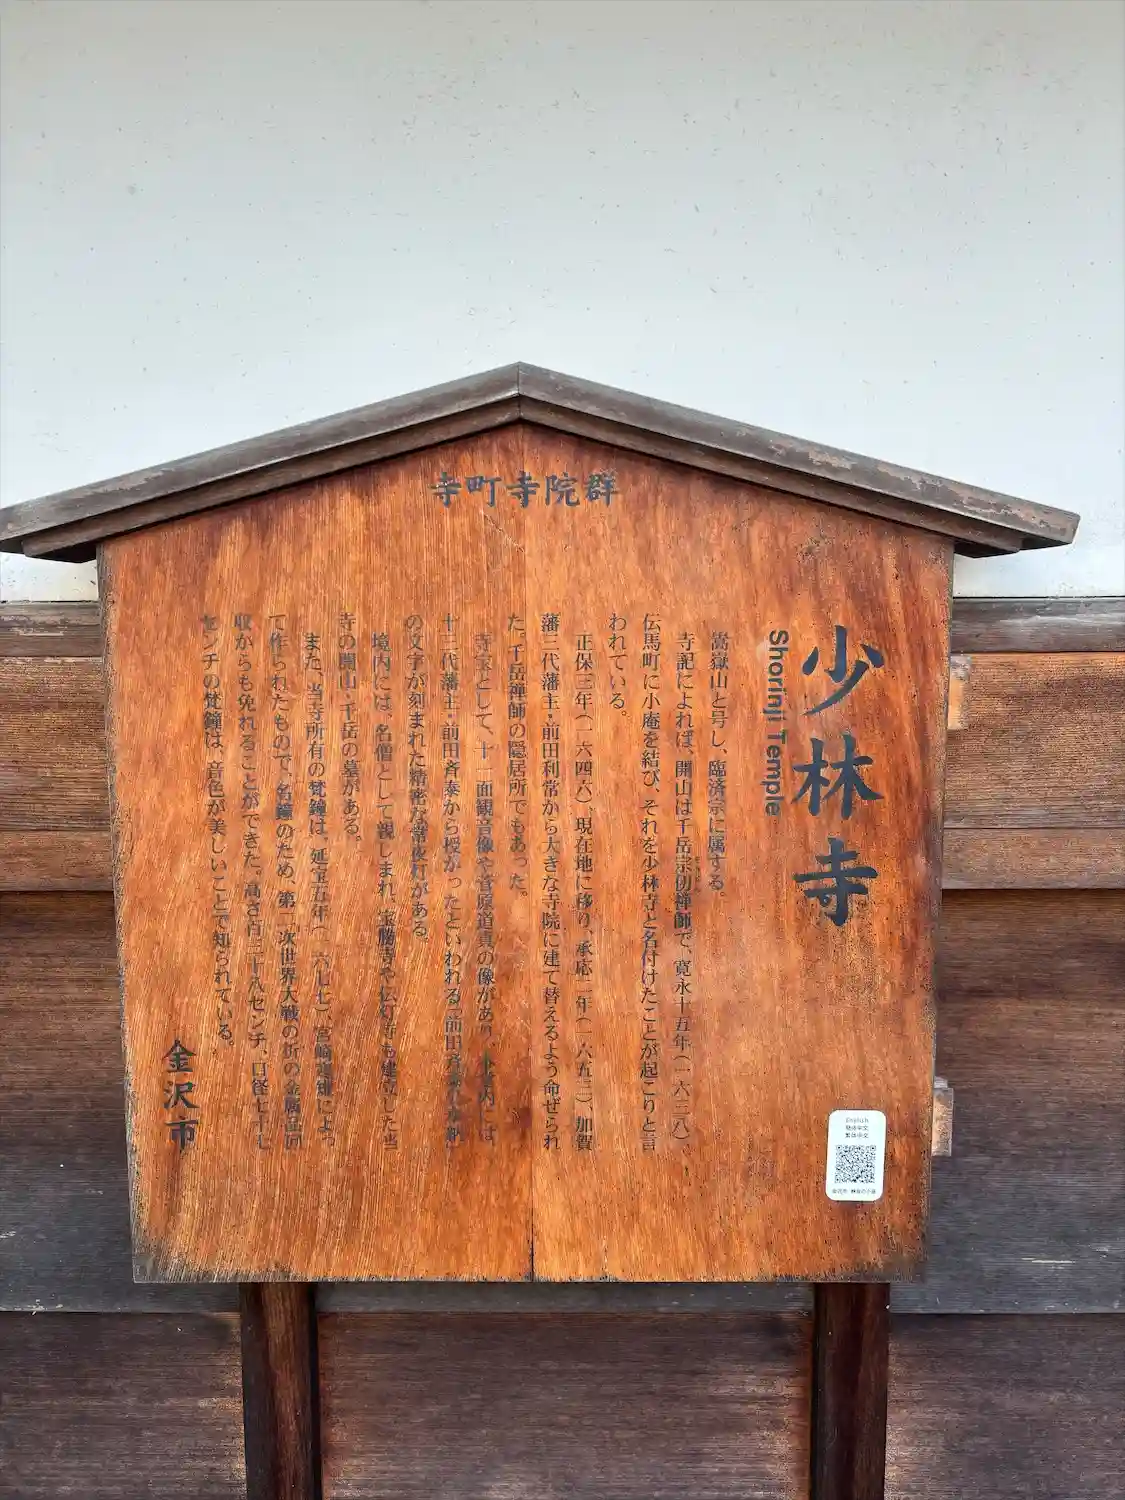 寺町寺院群
少林寺
Shorinji Temple
嵩嶽山と号し、臨済宗に属する。
寺記によれば、開山は千岳宗仞禅師で、寛永十五年(一六三八)、
伝馬町に小庵を結び、それを少林寺と名付けたことが起こりと言
われている。
正保三年(一六四六)、現在地に移り、承応二年(一六五三)、加賀
藩三代藩主・前田利常から大きな寺院に建て替えるよう命ぜられ
た。千岳禅師の隠居所でもあった。
寺宝として、十一面観音像や菅原道真の像があり、
十三代藩主・前田斉泰から授かったといわれる「前田斉泰
の文字が刻まれた精密な常夜灯がある。
境内には、名僧として親しまれ、宝勝寺や伝灯寺も建立した当
寺の開山・千岳の墓がある。
また、当寺所有の梵鐘は、延宝五年(一六七七)、宮崎 によっ
て作られたもので、名鐘のため、第二次世界大戦の折の金属品回
収からも免れることができた。高さ百三十八センチ、口径七十七
センチの梵鐘は、音色が美しいことで知られている。
金沢市
English
简体中文
繁体中文